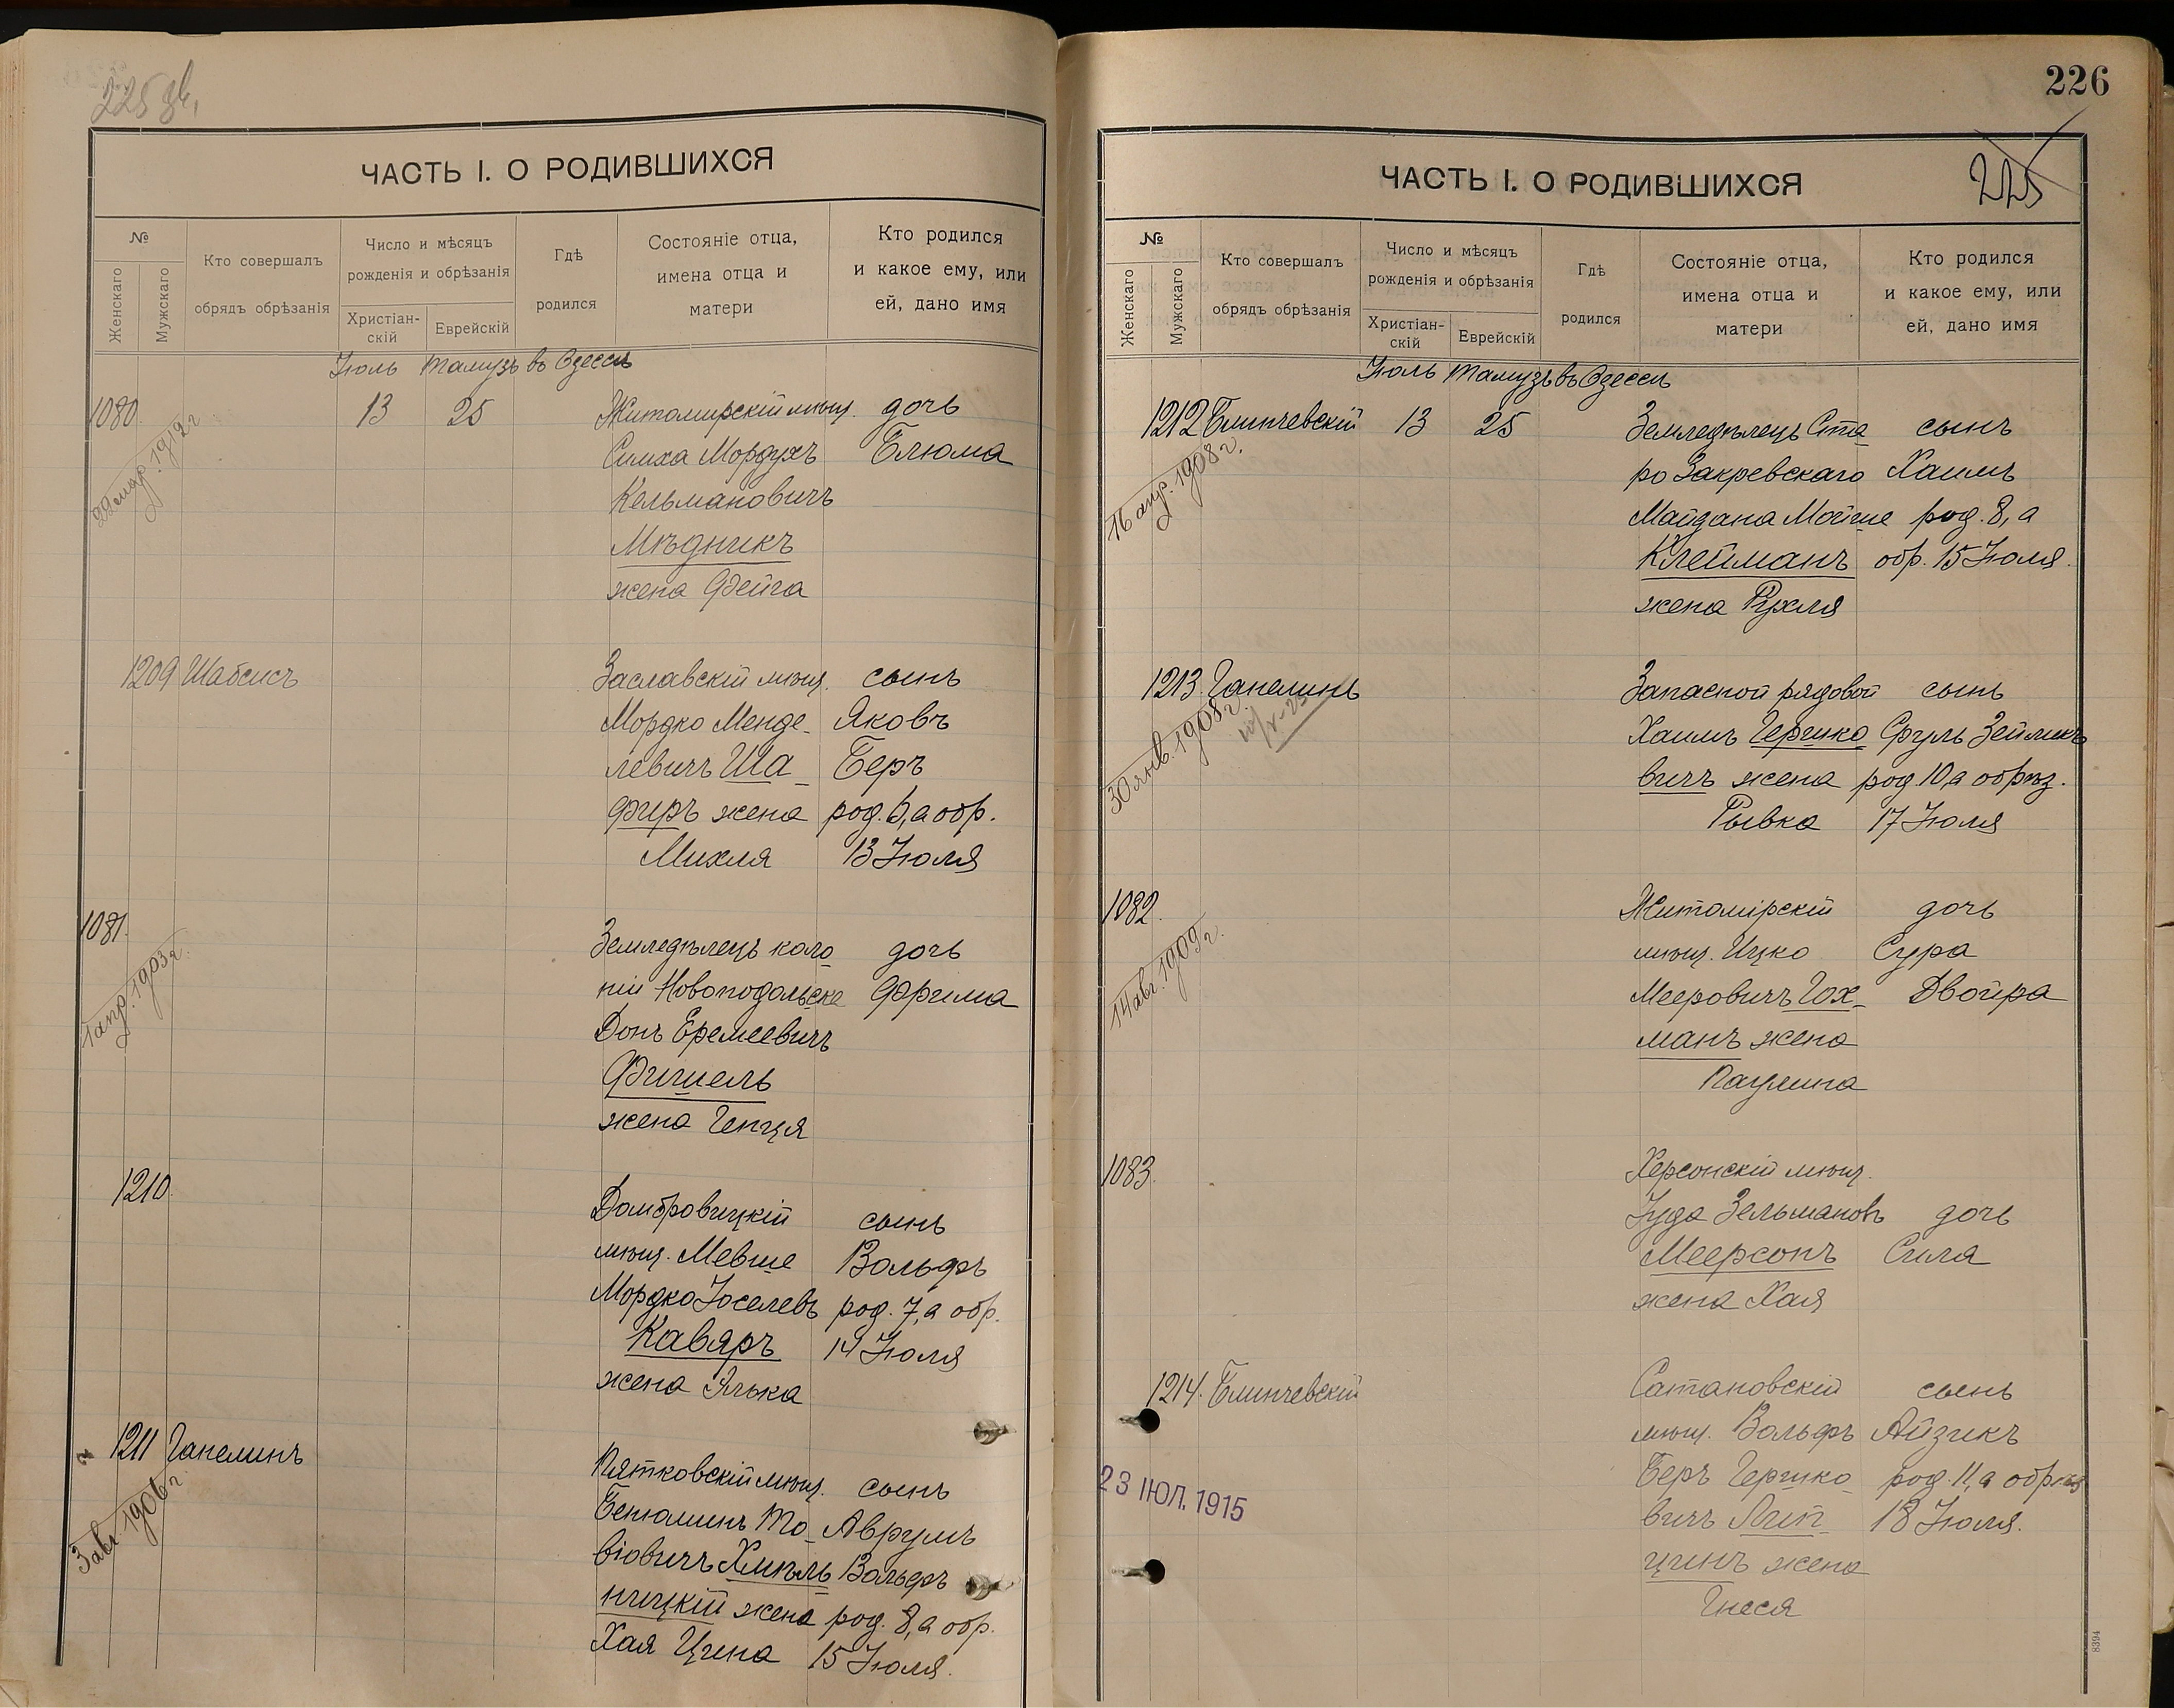 225 зв.
ЧАСТЬ I. О РОДИВШИХСЯ
№
Женскаго
Мужскаго
Кто совершалъ
обрядъ обрѣзанія
Число и мѣсяцъ
рожденія и обрѣзанія
Христіан-
скій
Еврейскій
Гдѣ
родился
Состояніе отца,
имена отца и
матери
Кто родился
и какое ему, или
ей, дано имя
Іюль Тамузъ въ Одессѣ
1080 13 25 Житомирскій мѣщ. дочь
Симха Мордухъ Блюма
Кельмановичъ
Мѣдникъ
жена Фейга
1912 г.
1209 Шабсисъ Заславскій мѣщ. сынъ
Мордко Менде- Яковъ
левичъ Ша- Беръ
фиръ жена род. 6, а обр.
Михля 13 Іюля
1081. Земледѣлецъ коло дочь
ніи Новоподольске Фрима
1 апр. 1903 г.
Донъ Еремеевичъ
Фишель
жена Генця
1210. Домбровицкій сынъ
мѣщ. Мевше Вольфъ
Мордко Іоселевъ род. 7, а обр.
Каваръ 14 Іюля
жена Элька
1211 Ганелинъ Пятковскій мѣщ. сынъ
3 авг. 1906 г.
Бенюминъ То- Аврумъ
віовичъ Хмѣль Вольфъ
ницкій жена род. 8, а обр.
Хая Цина 15 Іюля.
226
225
ЧАСТЬ I. О РОДИВШИХСЯ
№
Женскаго
Мужскаго
Кто совершалъ
обрядъ обрѣзанія
Число и мѣсяцъ
рожденія и обрѣзанія
Христіан-
скій
Еврейскій
Гдѣ
родился
Состояніе отца,
имена отца и
матери
Кто родился
и какое ему, или
ей, дано имя
Іюль Тамузъ въ Одессѣ
1212 Блинчевскій 13 25 Земледѣлецъ Ста сынъ
16 апр. 1908 г.
ро Закревскаго Хаимъ
Майдана Мойше род. 8, а
Клейманъ обр. 15 Іюля.
жена Рухля
1213. Ганелинъ Запасной рядовой сынъ
30 янв. 1908 г.
Хаимъ Гершко Сруль Зейликъ
вичъ жена род. 10 а обрѣз.
Рывка 17 Іюля
1082. Житомірскій дочь
14 авг. 1909 г.
мѣщ. Ицко Сура
Мееровичъ Гох- Двойра
манъ жена
Паулина
1083. Херсонскій мѣщ.
Іуда Зельмановъ дочь
Меерсонъ Силя
жена Хая
1214. Блинчевскій Сатановскій сынъ
мѣщ. Вольфъ Айзикъ
Беръ Гершко род. 11, а обрѣз
вичъ Лип- 18 Іюля.
цинъ жена
Гнеся
23 ІЮЛ. 1915
8394